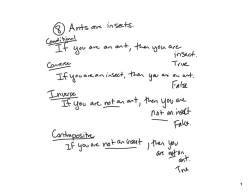 8 Ants are insects.
Conditional
If you are an ant, then you are
insect.
True
Converse
If you are an insect, then you are an ant.
False
Inverse
If you are not an ant, then you are
not an insect
False.
Contrapositive
If you are not an insect, then you
are not an
ant.
True
1